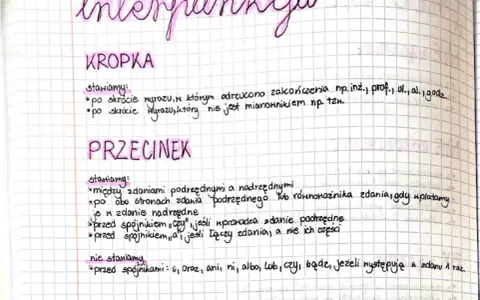 interpunkcja
KROPKA
stawiamy:
• po skrócie wyrazu, w którym odrzucono zakończenia np. inż., prof., ul., al., godz.
• po skrócie wyrazu, który nie jest mianownikiem np. tzn.
PRZECINEK
stawiamy:
• między zdaniami podrzędnymi a nadrzędnymi
• po obu stronach zdania podrzędnego lub równoważnika zdania, gdy wplatamy
je w zdanie nadrzędne
• przed spójnikiem „czy", jeśli wprowadza zdanie podrzędne
• przed spójnikiem „a", jeśli łączy zdania, a nie ich części
nie stawiamy
• przed spójnikami: i, oraz, ani, ni, albo, lub, czy, bądź, jeżeli występują w zdaniu 1 raz.